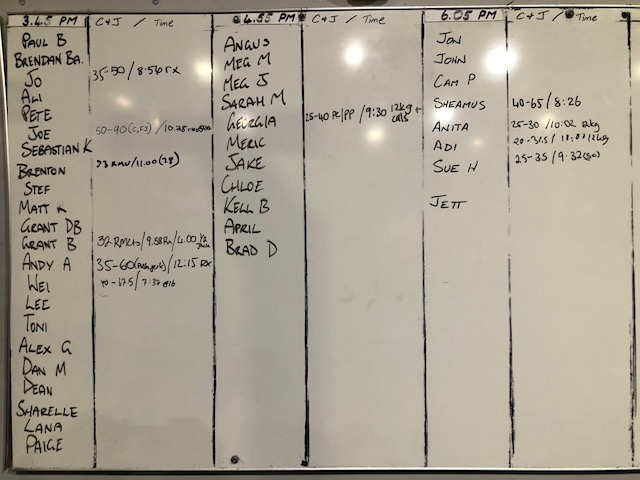 3.45 PM C & J / Time
PAUL B
BRENDAN BA.
JO 35-50 / 8:56 rx
ALI
PETE
JOE 50-90 (C,FS) / 10:28
SEBASTIAN K
BRENTON 73 RMU / 11:00
STEF
MATT K
GRANT DB
GRANT B 32 RMUs / 9:58 Rx / 4.00
ANDY A 35-60 / 12:15 RX
WEI 40-47.5 / 7:37
LEE
TONI
ALEX G
DAN M
DEAN
SHARELLE
LANA
PAIGE
4.55 PM C & J / Time
ANGUS
MEG M
MEG J
SARAH M
GEORGIA 25-40 PC/PP / 9:30 12kg
MERIC
JAKE
CHLOE
KELL B
APRIL
BRAD D
6.05 PM C & J / Time
JON
JOHN
CAM P
SHEAMUS 40-65 / 8:26
ANITA 25-30 / 10:02 12kg
ADI 12kg
SUE H 25-35 / 9:32
JETT